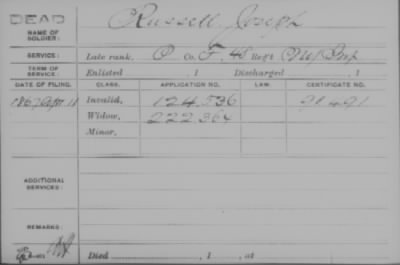 DEAD
NAME OF SOLDIER: Russell Joseph
SERVICE: Late rank, P Co. F, 45 Reg't Inf
TERM OF SERVICE: Enlisted , 1 Discharged , 1
DATE OF FILING. CLASS. APPLICATION NO. LAW. CERTIFICATE NO.
1867 Sept. Invalid, 124,536 91.491
Widow, 222,364
Minor,
ADDITIONAL SERVICES:
REMARKS:
Died , 1 , at